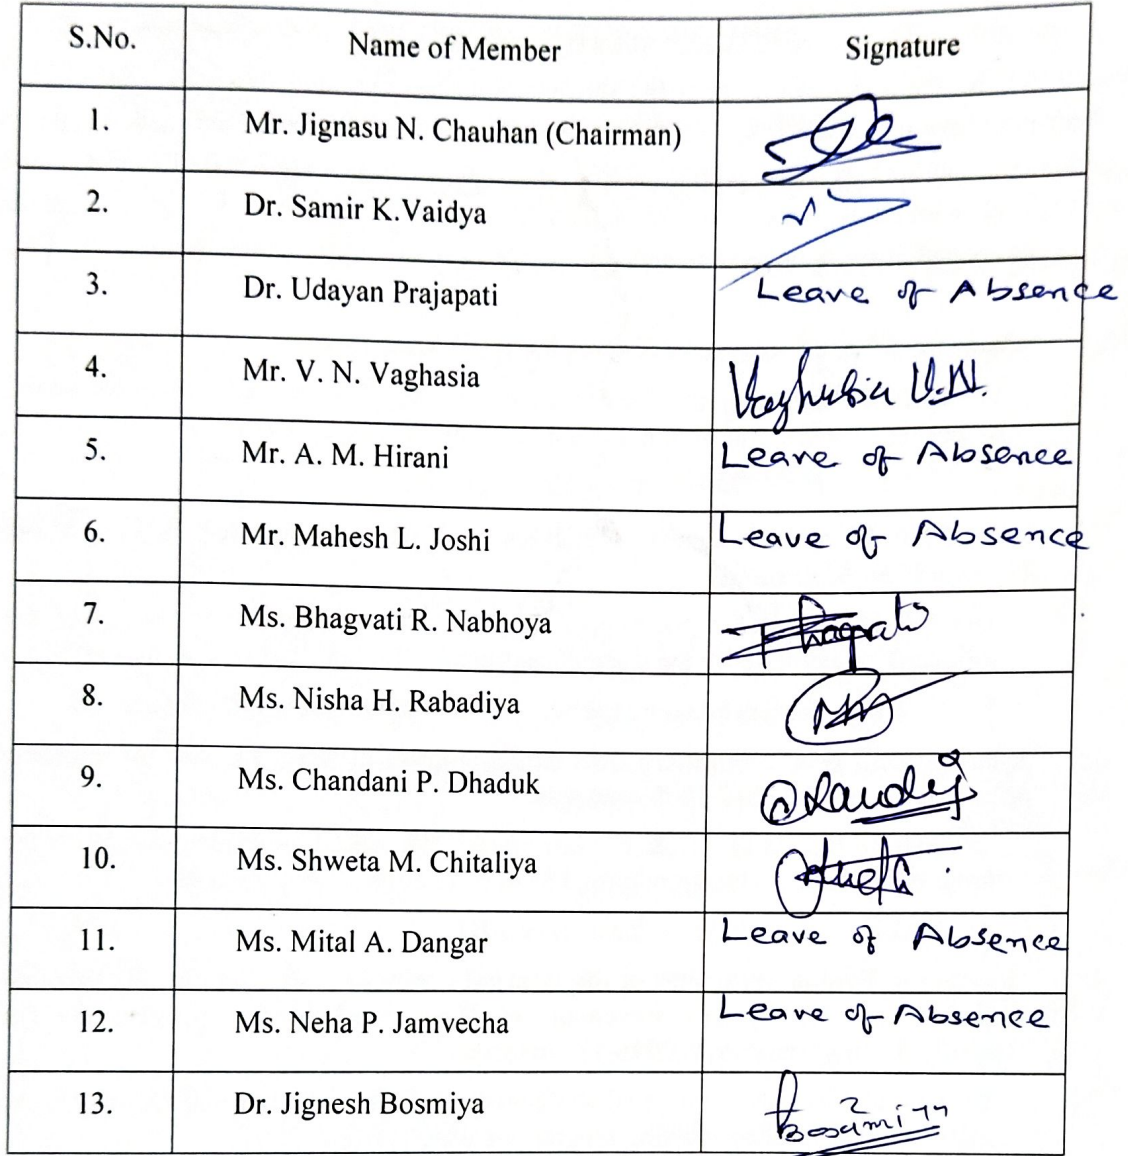 S.No. Name of Member Signature
1. Mr. Jignasu N. Chauhan (Chairman)
2. Dr. Samir K.Vaidya
3. Dr. Udayan Prajapati Leave of Absence
4. Mr. V. N. Vaghasia Vaghasia V.N.
5. Mr. A. M. Hirani Leave of Absence
6. Mr. Mahesh L. Joshi Leave of Absence
7. Ms. Bhagvati R. Nabhoya
8. Ms. Nisha H. Rabadiya
9. Ms. Chandani P. Dhaduk
10. Ms. Shweta M. Chitaliya
11. Ms. Mital A. Dangar Leave of Absence
12. Ms. Neha P. Jamvecha Leave of Absence
13. Dr. Jignesh Bosmiya